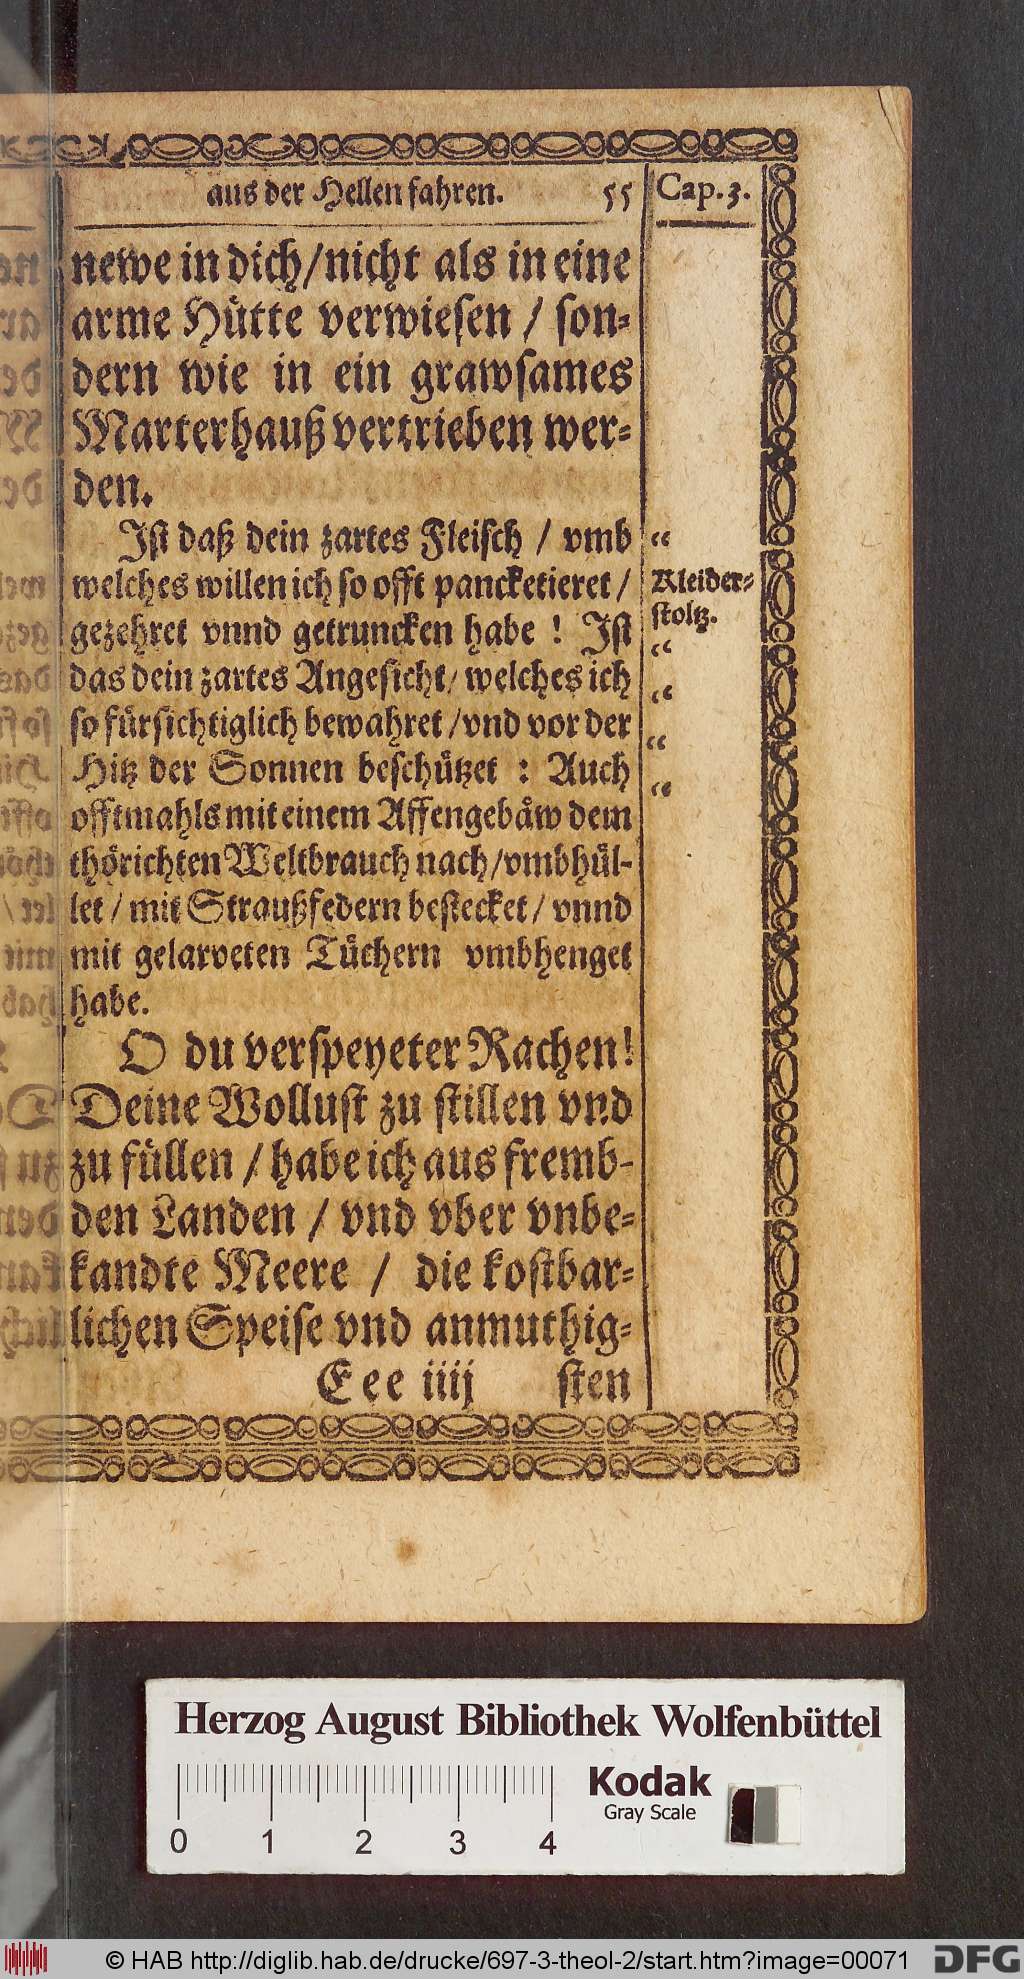 aus der Hellen fahren. 55 Cap. 3.
newe in dich/nicht als in eine
arme Huͤtte verwiesen / son-
dern wie in ein grawsames
Marterhauß vertrieben wer-
den.
Ist daß dein zartes Fleisch / vmb “
welches willen ich so offt pancketieret / Kleider-
stoltz.
gezehret vnnd getruncken habe ! Ist “
das dein zartes Angesicht/ welches ich “
so fuͤrsichtiglich bewahret /vnd vor der “
Hitz der Sonnen beschuͤtzet : Auch “
offtmahls mit einem Affengebaͤw dem
thoͤrichten Weltbrauch nach/vmbhuͤl-
let / mit Straußfedern bestecket / vnnd
mit gelarveten Tuͤchern vmbhenget
habe.
O du verspeyeter Rachen!
Deine Wollust zu stillen vnd
zu fuͤllen / habe ich aus fremb-
den Landen / vnd vber vnbe-
kandte Meere / die kostbar-
lichen Speise vnd anmuthig-
Eee iiij sten
Herzog August Bibliothek Wolfenbüttel
Kodak
Gray Scale
0 1 2 3 4
© HAB http://diglib.hab.de/drucke/697-3-theol-2/start.htm?image=00071 DFG